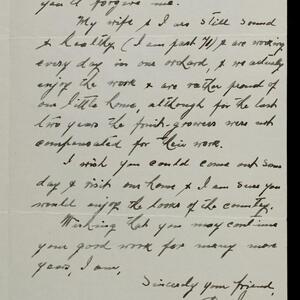 you'll forgive me.
My wife & I are still sound
& healthy (I am past 70) & are working
every day in our orchard, & we actually
enjoy the work & are rather proud of
our little home, although for the last
two years the fruit-growers were not
compensated for their work.
I wish you could come out some
day & visit our home & I am sure you
would enjoy the looks of the country.
Wishing that you may continue
your good work for many more
years, I am,
Sincerely your friend,